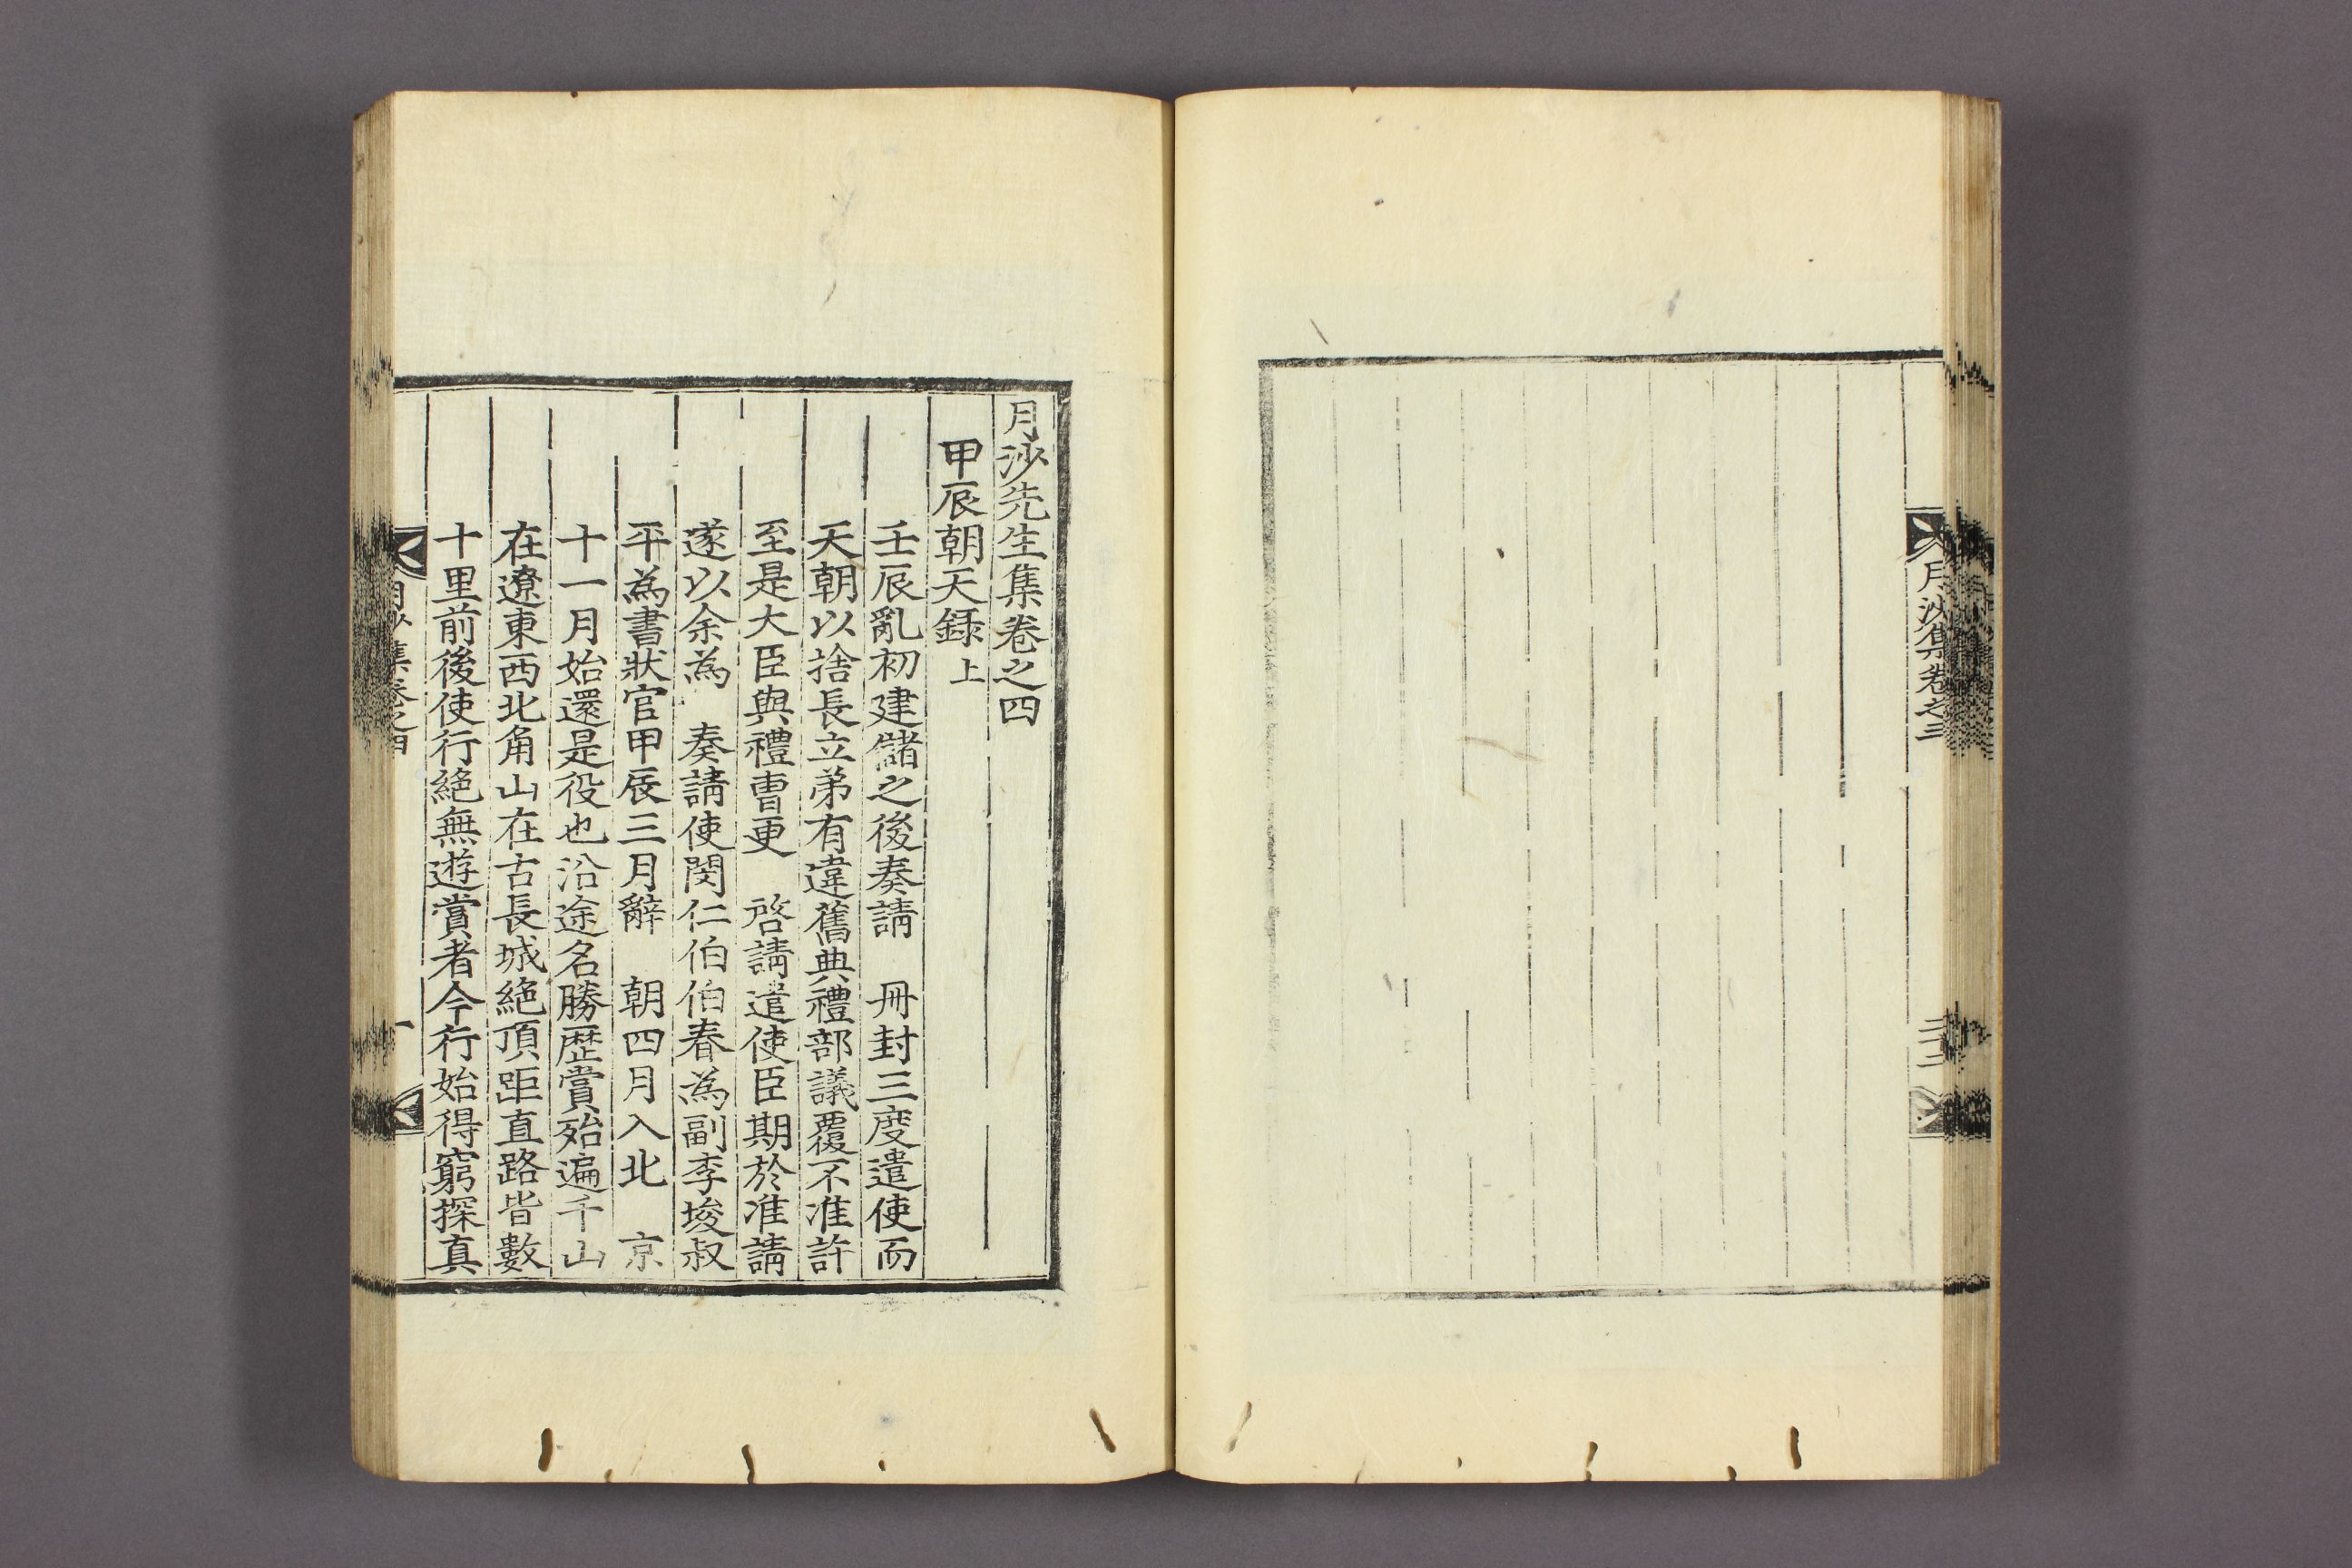 月沙集卷之三
三十二
月沙先生集卷之四
甲辰朝天録上
壬辰亂初建儲之後奏請　冊封三度遣使而
天朝以捨長立弟有違舊典禮部議覆不准許
至是大臣與禮曹更　啓請遣使臣期於准請
遂以余為　奏請使閔仁伯伯春為副李埈叔
平為書狀官甲辰三月辭　朝四月入北　京
十一月始還是役也沿途名勝歷賞殆遍千山
在遼東西北角山在古長城絶頂距直路皆數
十里前後使行絶無遊賞者今行始得窮探真
月沙集卷之四
一